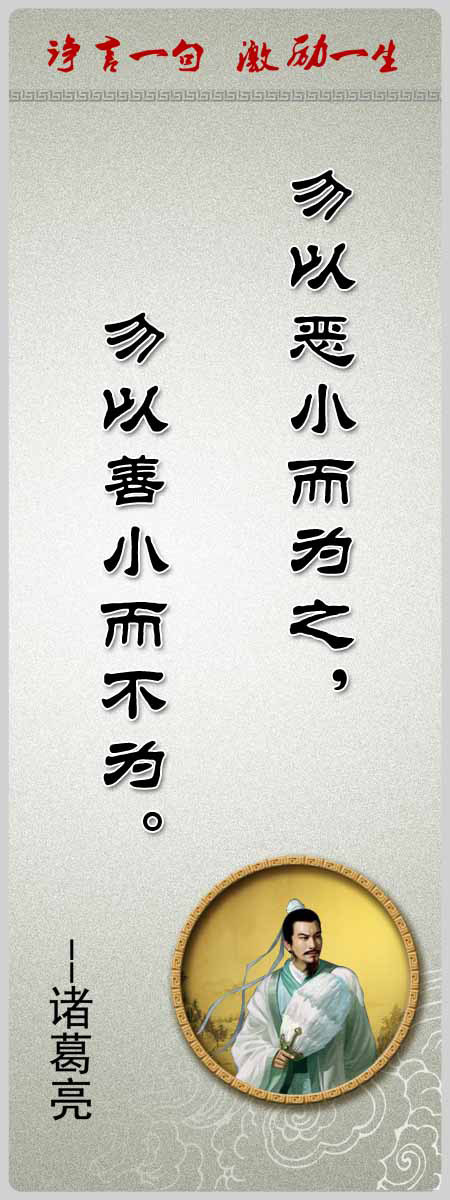 诤言一句 激励一生
勿以恶小而为之，
勿以善小而不为。
--诸葛亮